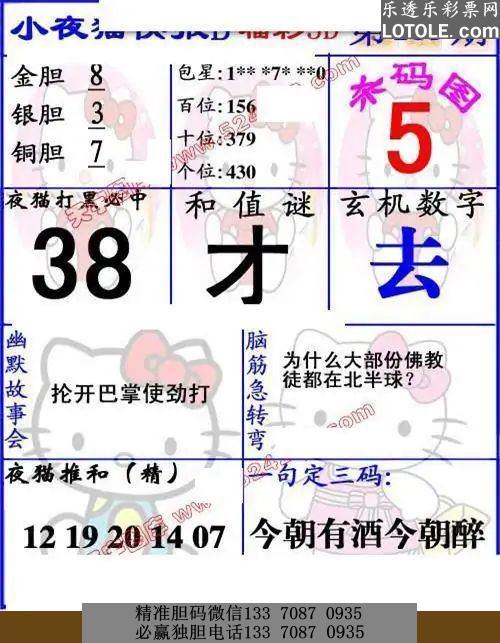 乐透乐彩票网
LOTOLE.COM
小夜猫快报D 福彩3D 第 期
金胆 8
银胆 3
铜胆 7
包星:1** *7* **0
百位:156
十位:379
个位:430
杀码图
5
夜猫打黑必中
38
和值谜
才
玄机数字
去
幽默故事会
抡开巴掌使劲打
脑筋急转弯
为什么大部份佛教
徒都在北半球?
夜猫推和(精)
12 19 20 14 07
一句定三码:
今朝有酒今朝醉
精准胆码微信133 7087 0935
必赢独胆电话133 7087 0935